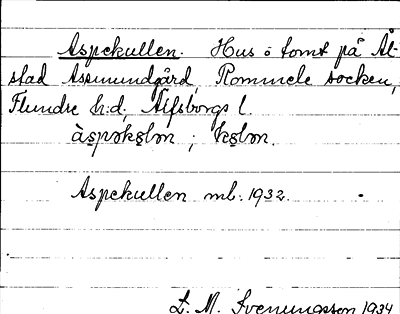 Aspekullen. Hus o tomt på Ål-
stad Assmundgård, Rommele socken,
Flundre h:d, Älfsborgs l.
Aspekullen ml. 1932.
L. M. Svenungsson 1934